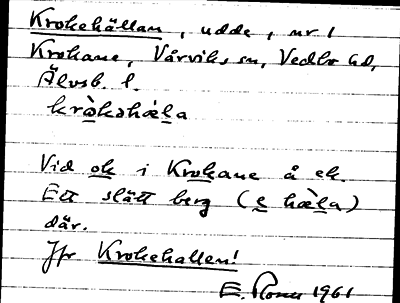 Krokehällan, udde, nr 1
Krokane, Vårviks sn, Vedbo hd,
Älvsb. l.
kròkəhæla
Vid ok i Krokane å ek.
Ett slätt berg (e hæ̀la)
där.
Jfr Krokehallen!
E. 1961